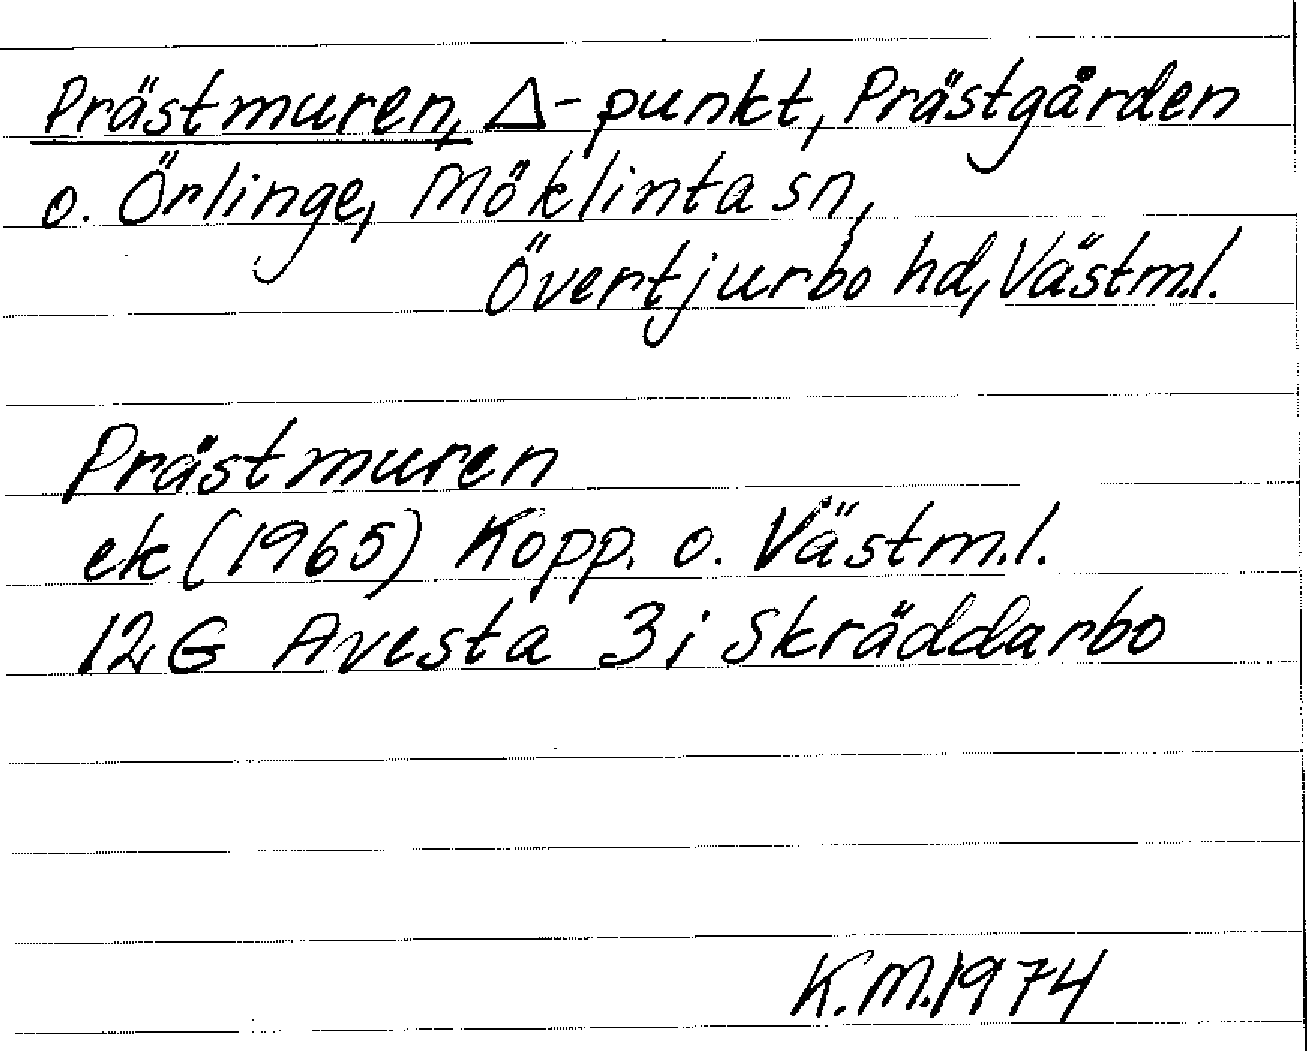 Prästmuren, Δ-punkt, Prästgården
o. Örlinge, Möklinta sn,
Övertjurbo hd, Västm.l.
Prästmuren
ek (1965) Kopp. o. Västm.l.
12 G Avesta 3 i Skräddarbo
K.M. 1974